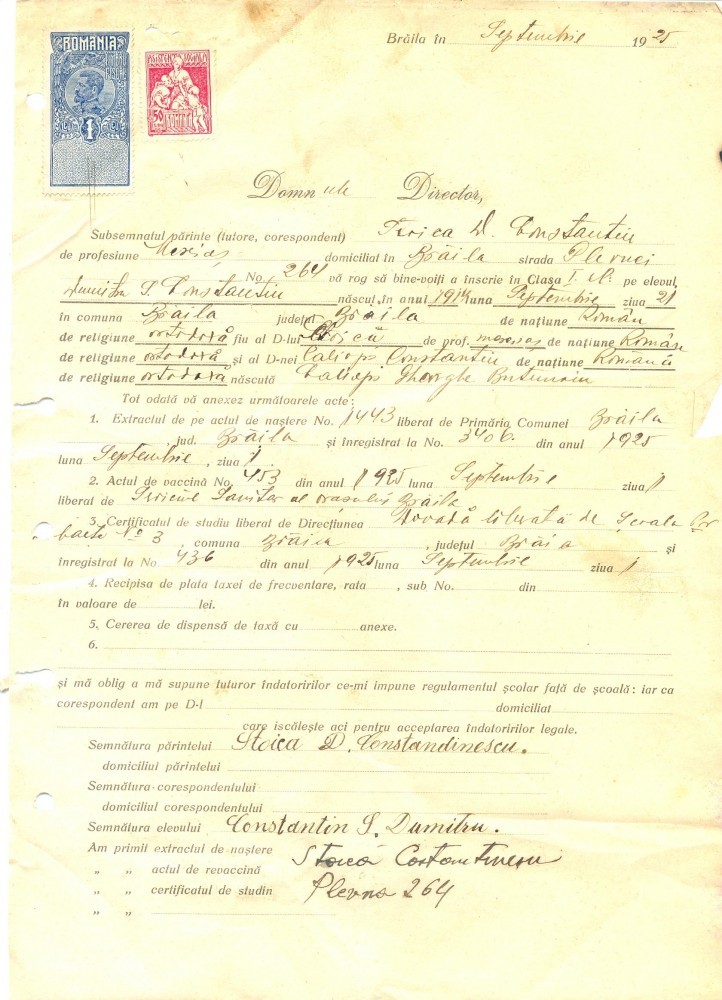 ROMANIA
1
ASISTENTA SOCIALA
50
ROMANIA
Brăila în Septembrie 1925
Domnule Director,
Subsemnatul părinte (tutore, corespondent) D. Constantin
de profesiune domiciliat în Brăila strada Plevnei
No. 264 vă rog să bine-voiți a înscrie în Clasa I pe elevul
Dumitru S. Constantin născut în anul luna Septembrie ziua 21
în comuna Brăila județul Brăila de națiune Român
de religiune ortodoxă fiu al D-lui de prof. de națiune Română
de religiune ortodoxă și al D-nei Caliopi Constantin de națiune Română
de religiune ortodoxă născută Caliopi Gheorghe
Tot odată vă anexez următoarele acte:
1. Extractul de pe actul de naștere No. 1443 liberat de Primăria Comunei Brăila
, jud. Brăila și înregistrat la No. 3406 din anul 1925
luna Septembrie, ziua 1.
2. Actul de vaccină No. 453 din anul 1925 luna Septembrie ziua 1
liberat de Serviciul Sanitar al orașului Brăila
3. Certificatul de studiu liberat de Direcțiunea Dovadă liberată de Școala
No 3, comuna Brăila, județul Brăila și
înregistrat la No. 436 din anul 1925 luna Septembrie ziua 1
4. Recipisa de plata taxei de frecventare, rata , sub No. din
în valoare de lei.
5. Cererea de dispensă de taxă cu anexe.
6.
și mă oblig a mă supune tuturor îndatoririlor ce-mi impune regulamentul școlar față de școală: iar ca
corespondent am pe D-l domiciliat
care iscălește aci pentru acceptarea îndatoririlor legale.
Semnătura părintelui Stoica D. Constandinescu.
domiciliul părintelui
Semnătura corespondentului
domiciliul corespondentului
Semnătura elevului Constantin S. Dumitru.
Am primit extractul de naștere Stoica Costantinescu
„ „ actul de revaccină
„ „ certificatul de studin Plevna 264
„ „